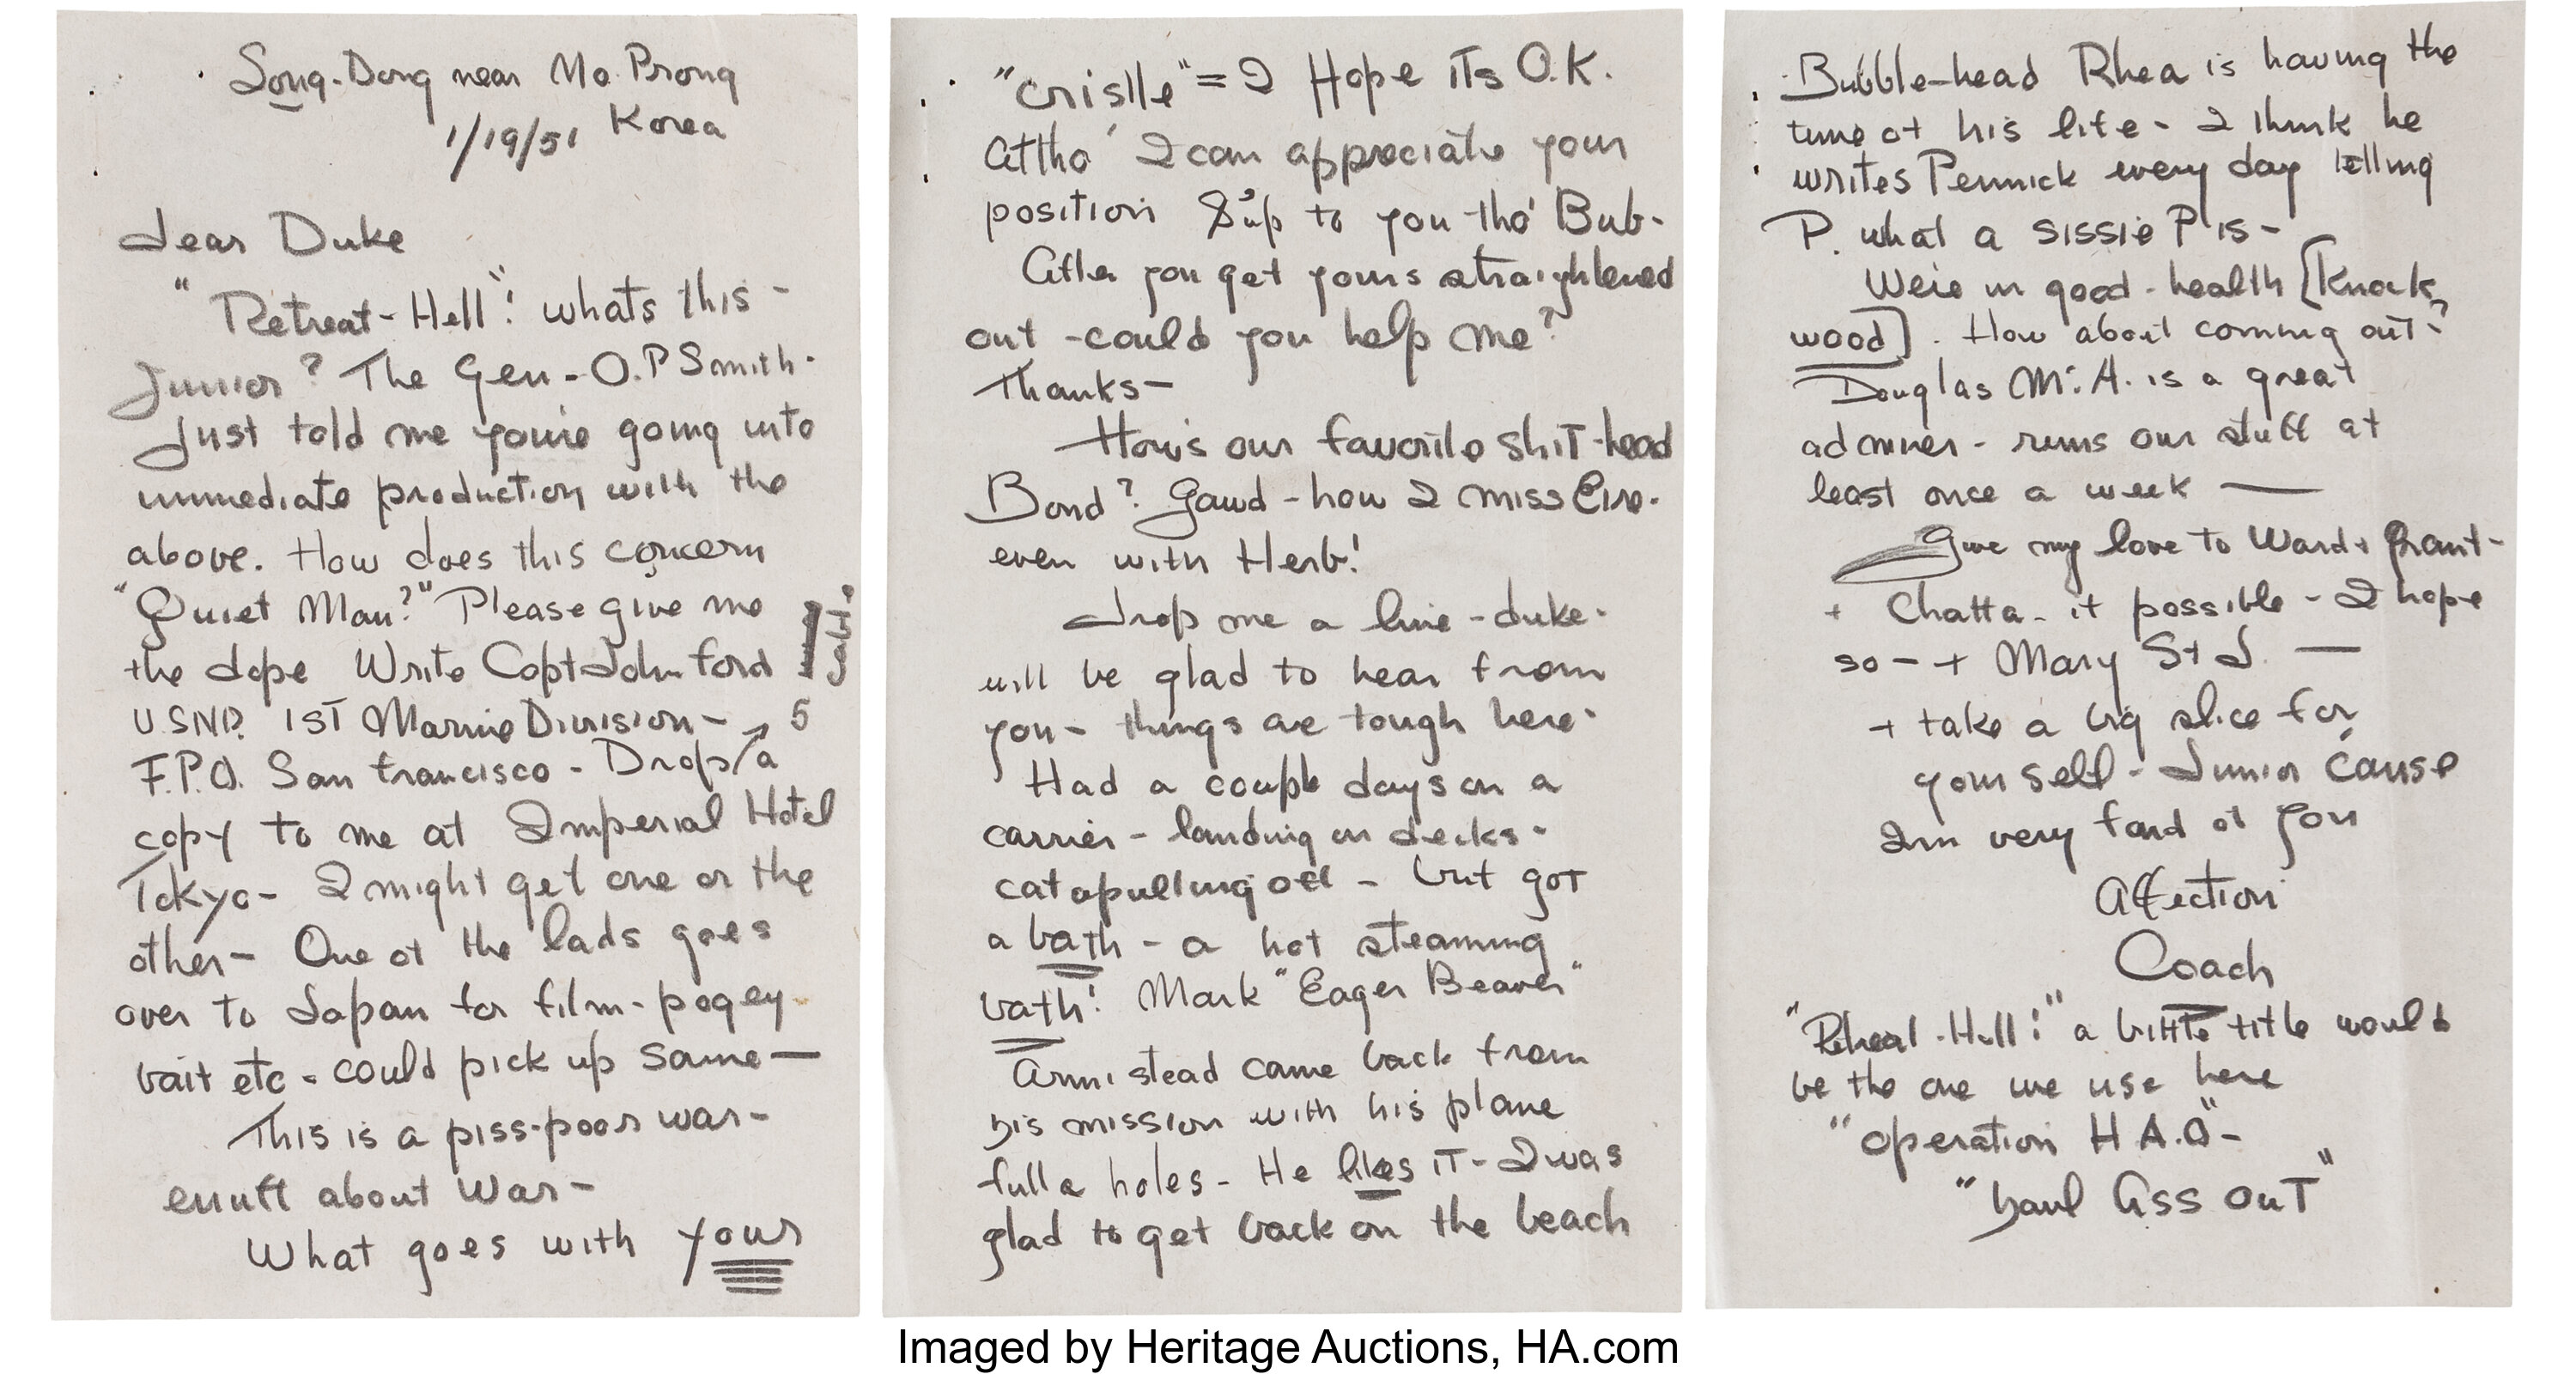 Song-Dong near Ma Prong
Korea
1/19/51
dear Duke
"Retreat-Hell"! whats this -
Junior? The Gen - O.P Smith -
Just told me you're going into
immediate production with the
above. How does this concern
"Quiet Man?" Please give me
the dope Write Capt John Ford
USNR 1ST Marine Division -
F.P.O. San Francisco - Drop a 5
copy to me at Imperial Hotel
Tokyo - I might get one or the
other - One of the lads goes
over to Japan for film - pogey
bait etc - could pick up same —
This is a piss-poor war -
enuff about War -
What goes with your
"crislle" = I Hope its O.K.
Altho' I can appreciate your
position up to you tho' Bub -
After you get yours straightened
out - could you help me?
Thanks -
How's our favorite shit-head
Bond? Gawd - how I miss Eire -
even with Herb!
drop me a line - duke -
will be glad to hear from
you - things are tough here -
Had a couple days on a
carrier - landing on decks -
catapulting off - but got
a bath - a hot steaming
bath! Mark "Eager Beaver"
Armistead came back from
his mission with his plane
full a holes - He likes iT - I was
glad to get back on the beach
Bubble-head Rhea is having the
time of his life - I think he
writes Pennick every day telling
P. what a sissie P is -
We're in good - health [Knock
wood]. How about coming out?
Douglas Mc.A. is a great
admirer - runs our stuff at
least once a week —
Give my love to Ward + Grant -
+ Chatta - if possible - I hope
so - + Mary St J. —
+ take a big slice for
yourself - Junior 'cause
Im very fond of you
Affection
Coach
"Retreat - Hell!" a title would
be the one we use here
"operation H.A.O" -
"haul Ass ouT"
Imaged by Heritage Auctions, HA.com